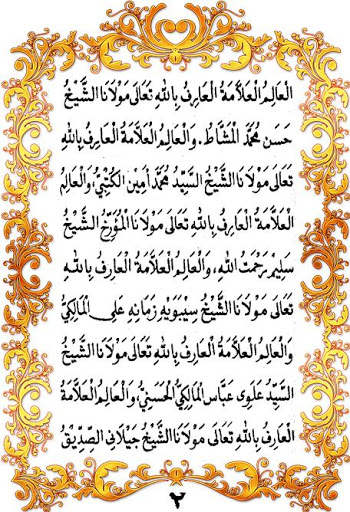 الْعَالِمُ الْعَلَّامَةُ الْعَارِفُ بِاللّٰهِ تَعَالَى مَوْلَانَا الشَّيْخُ
حَسَنْ مُحَمَّدْ الْمَشَّاطْ، وَالْعَالِمُ الْعَلَّامَةُ الْعَارِفُ بِاللّٰهِ
تَعَالَى مَوْلَانَا الشَّيْخُ السَّيِّدْ مُحَمَّدْ اَمِيْن الْكُتْبِيْ، وَالْعَالِمُ
الْعَلَّامَةُ الْعَارِفُ بِاللّٰهِ تَعَالَى مَوْلَانَا الْمُؤَرِّخْ الشَّيْخُ
سَلِيْم رَحْمَتُ اللّٰهِ، وَالْعَالِمُ الْعَلَّامَةُ الْعَارِفُ بِاللّٰهِ
تَعَالَى مَوْلَانَا الشَّيْخُ سِيْبَوَيْهِ زَمَانِهِ عَلِى الْمَالِكِيُّ
وَالْعَالِمُ الْعَلَّامَةُ الْعَارِفُ بِاللّٰهِ تَعَالَى مَوْلَانَا الشَّيْخُ
السَّيِّدْ عَلَوِى عَبَّاسْ الْمَالِكِيُّ الْحَسَنِيُّ، وَالْعَالِمُ الْعَلَّامَةُ
الْعَارِفُ بِاللّٰهِ تَعَالَى مَوْلَانَا الشَّيْخُ جَيْلَانِى الصِّدِّيْقُ
٢